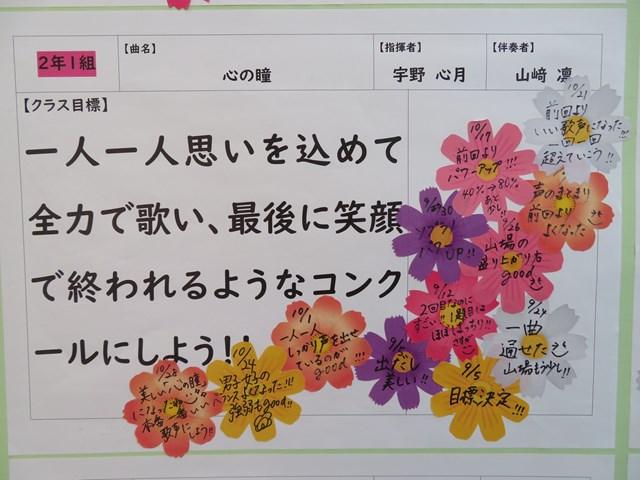 2年1組
【曲名】
心の瞳
【指揮者】
宇野 心月
【伴奏者】
山﨑 凛
【クラス目標】
一人一人思いを込めて
全力で歌い、最後に笑顔
で終われるようなコンク
ールにしよう!!
10/21
前回より
いい歌声になった!!
一回一回
超えていこう!!
10/17
前回より
パワーアップ!!!
40%→80%
あと
少し!!
声のまとまり
前回より
よくなった
9/30
UP!!
9/26
山場の
盛り上がり方
good
9/12
2回目なのに
すごい!!1題目に
ほぼばっちり!!
さすが
9/24
一曲
通せた
山場もう少し!!
10/1
一人一人
しっかり声を出せ
ているのが
good!!!
出だし
美しい!!
9/5
目標決定!!!
10/24
男子女子の
バランスよくなった!!
強弱もgood!!
10/28
美しい心の瞳
になったね
本番一番いい
歌声にしよう!!